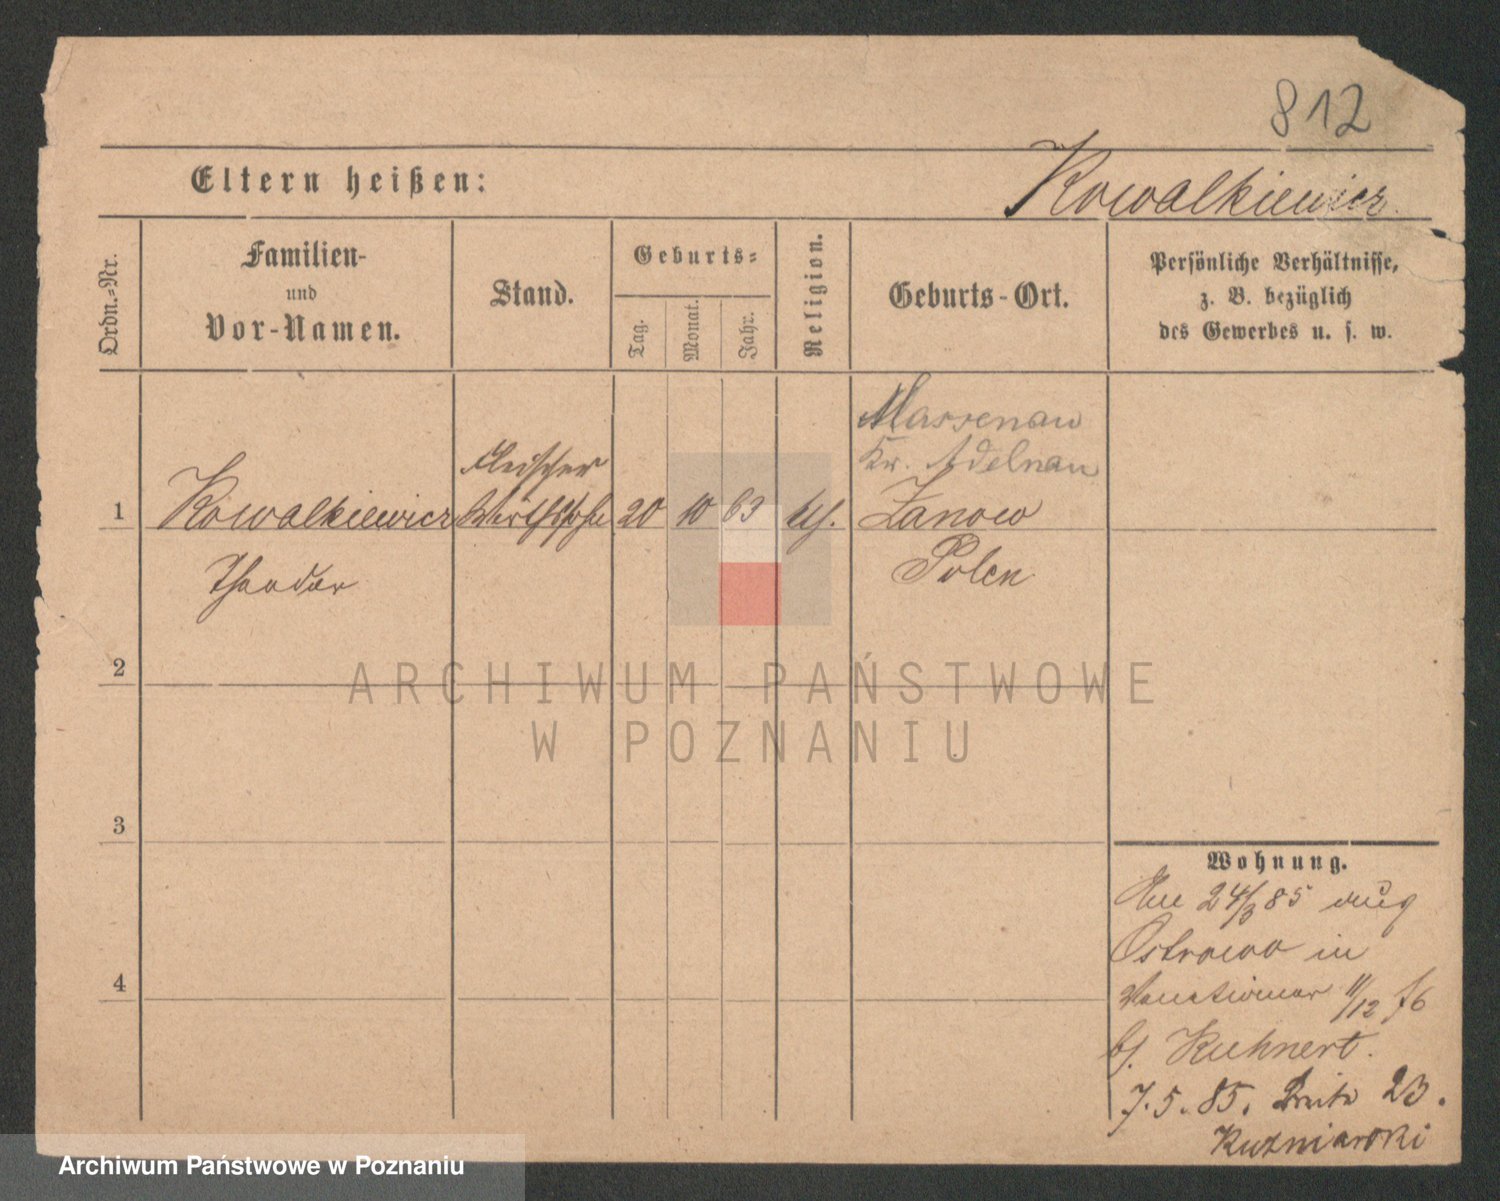 812
Eltern heißen:
Kowalkiewicz
Ordn.-Nr.
Familien-
und
Vor-Namen.
Stand.
Geburts-
Tag.
Monat.
Jahr.
Religion.
Geburts-Ort.
Persönliche Verhältnisse,
z. B. bezüglich
des Gewerbes u. s. w.
Massenau
Kr. Adelnau
Fleischer
1 Kowalkiewicz 20 10 63 Zanow
Theodor
Polen
2
3
4
Wohnung.
24/3 85
Ostrowo in
11/12
Kuhnert.
7.5.85. 23.
Kuzniarski
ARCHIWUM PAŃSTWOWE
W POZNANIU
Archiwum Państwowe w Poznaniu